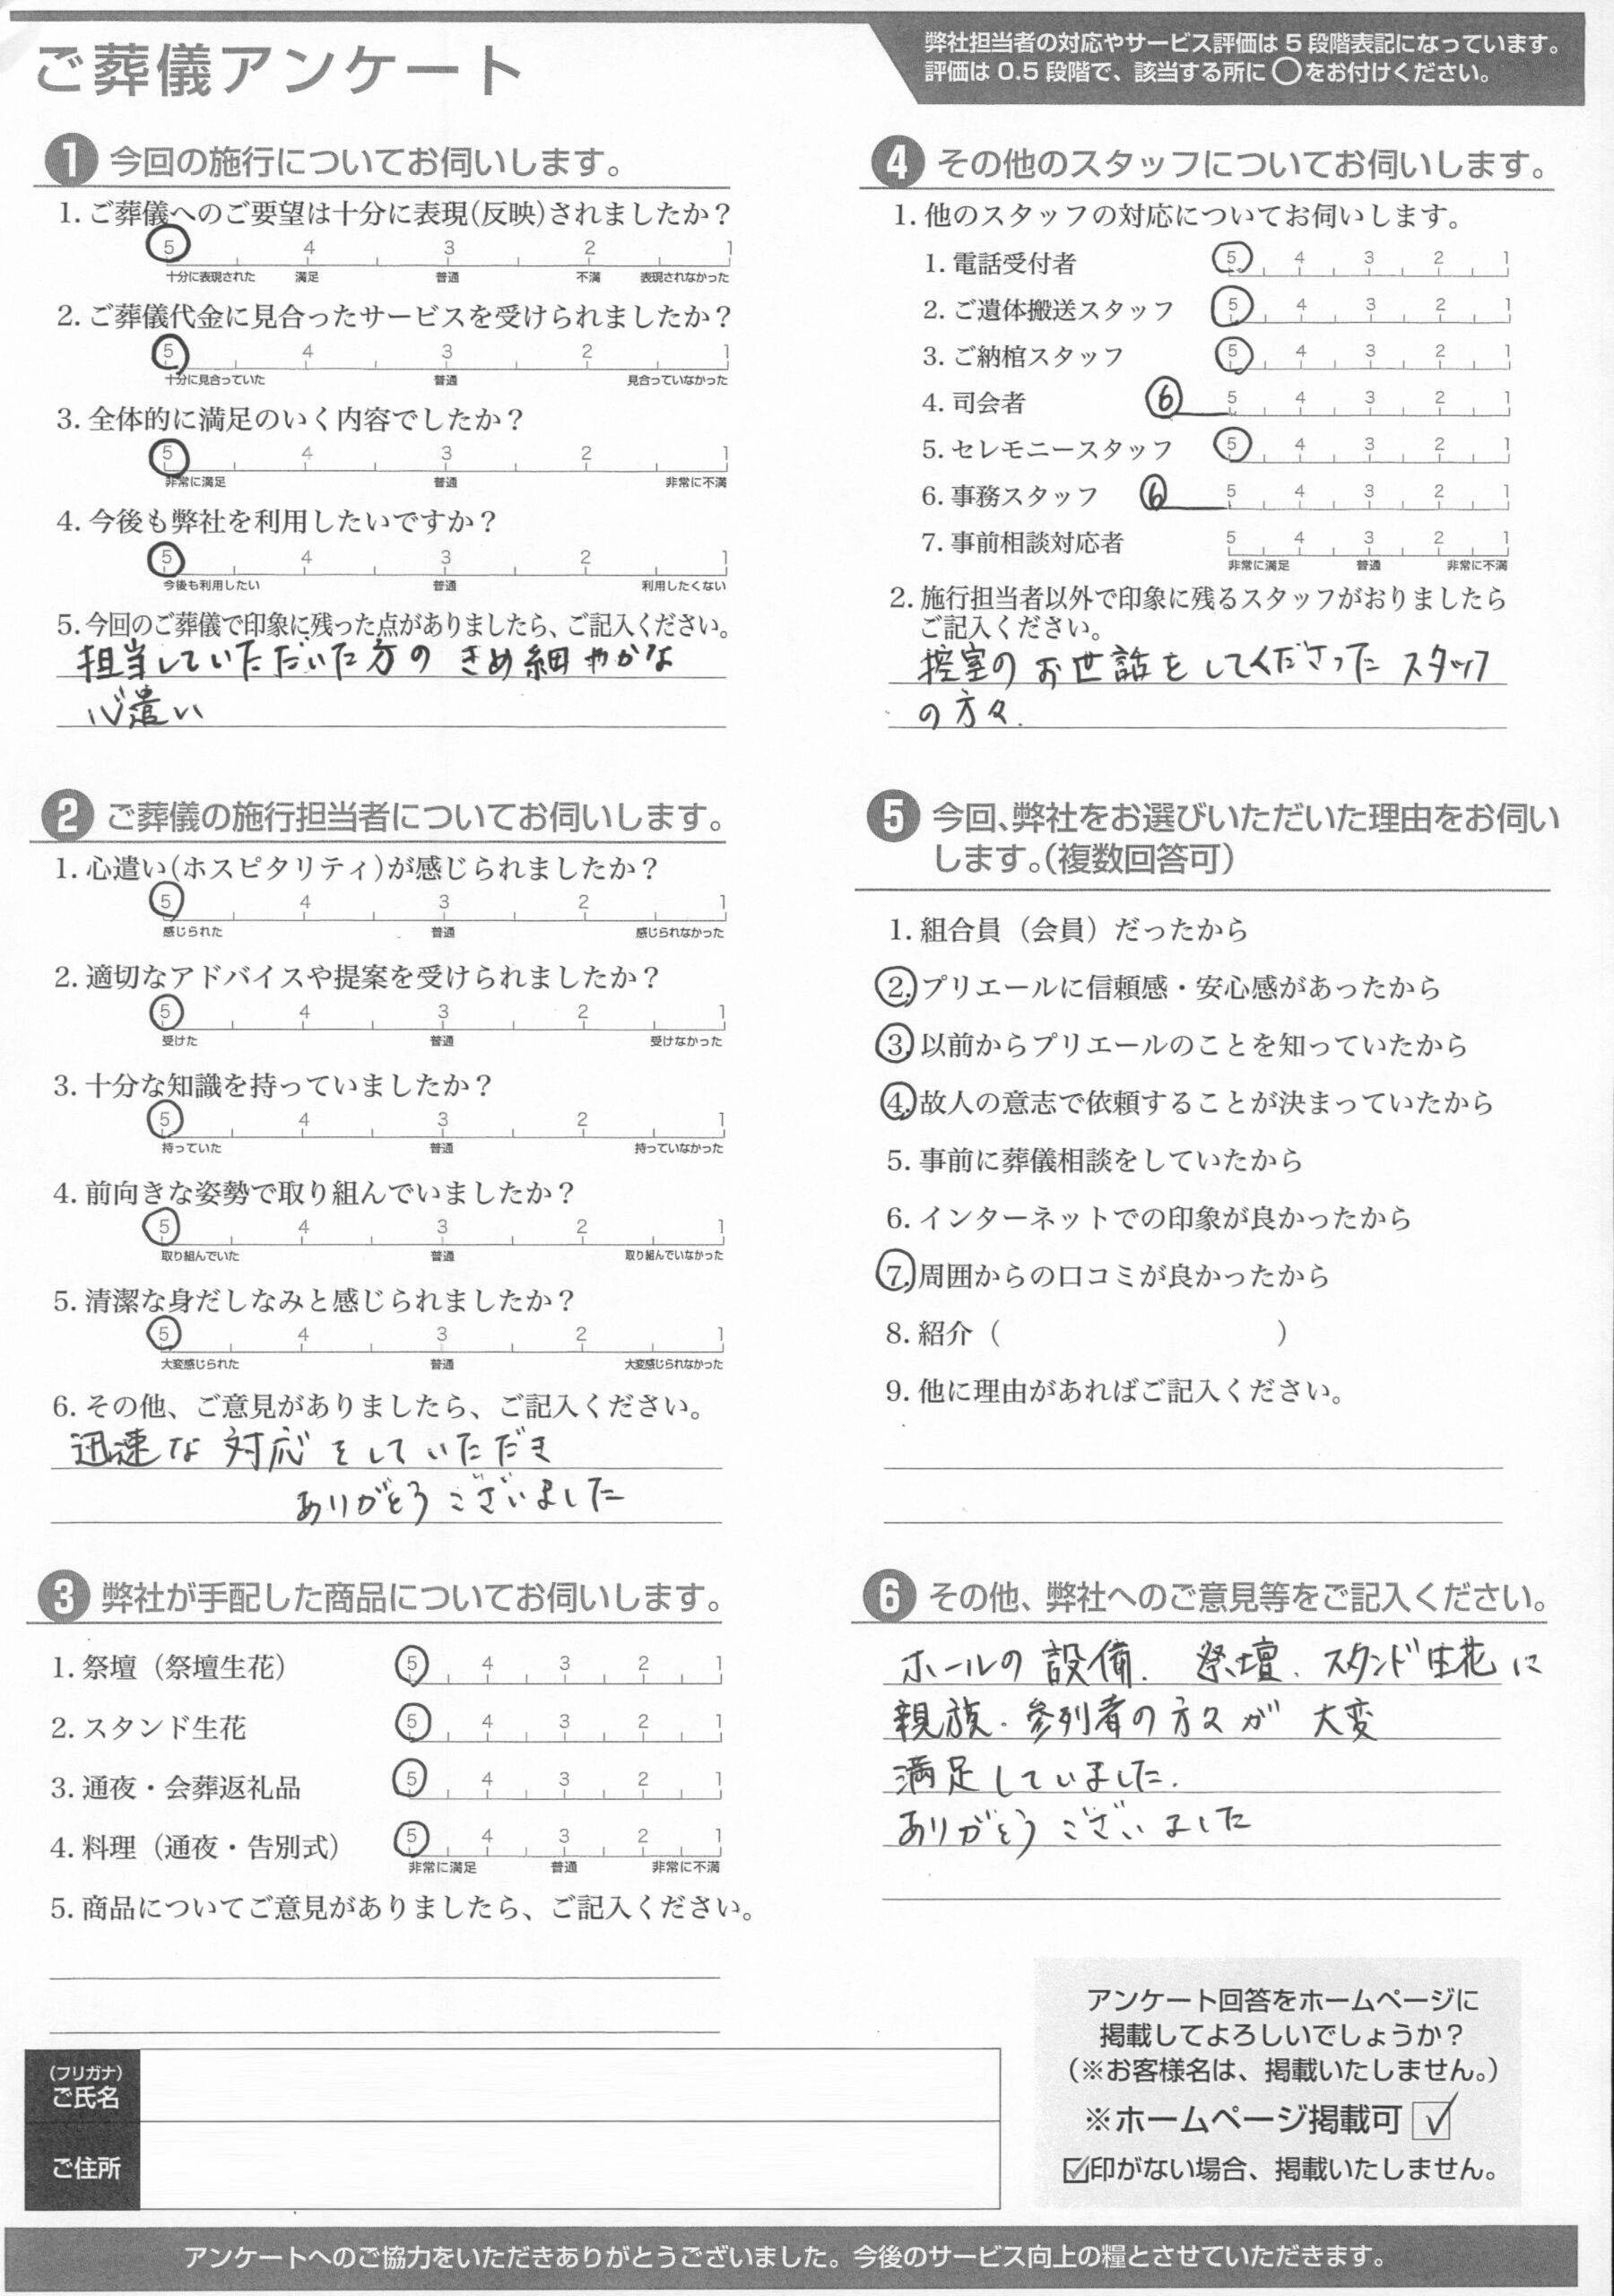 ご葬儀アンケート
弊社担当者の対応やサービス評価は 5 段階表記になっています。
評価は 0.5 段階で、該当する所に○をお付けください。
1 今回の施行についてお伺いします。
1. ご葬儀へのご要望は十分に表現(反映)されましたか？
5 4 3 2 1
十分に表現された 満足 普通 不満 表現されなかった
2. ご葬儀代金に見合ったサービスを受けられましたか？
5 4 3 2 1
十分に見合っていた 普通 見合っていなかった
3. 全体的に満足のいく内容でしたか？
5 4 3 2 1
非常に満足 普通 非常に不満
4. 今後も弊社を利用したいですか？
5 4 3 2 1
今後も利用したい 普通 利用したくない
5. 今回のご葬儀で印象に残った点がありましたら、ご記入ください。
担当していただいた方の きめ細やかな
心遣い
2 ご葬儀の施行担当者についてお伺いします。
1. 心遣い(ホスピタリティ)が感じられましたか？
5 4 3 2 1
感じられた 普通 感じられなかった
2. 適切なアドバイスや提案を受けられましたか？
5 4 3 2 1
受けた 普通 受けなかった
3. 十分な知識を持っていましたか？
5 4 3 2 1
持っていた 普通 持っていなかった
4. 前向きな姿勢で取り組んでいましたか？
5 4 3 2 1
取り組んでいた 普通 取り組んでいなかった
5. 清潔な身だしなみと感じられましたか？
5 4 3 2 1
大変感じられた 普通 大変感じられなかった
6. その他、ご意見がありましたら、ご記入ください。
迅速な 対応 をしていただき
ありがとうございました
3 弊社が手配した商品についてお伺いします。
1. 祭壇（祭壇生花） 5 4 3 2 1
2. スタンド生花 5 4 3 2 1
3. 通夜・会葬返礼品 5 4 3 2 1
4. 料理（通夜・告別式） 5 4 3 2 1
非常に満足 普通 非常に不満
5. 商品についてご意見がありましたら、ご記入ください。
4 その他のスタッフについてお伺いします。
1. 他のスタッフの対応についてお伺いします。
1. 電話受付者 5 4 3 2 1
2. ご遺体搬送スタッフ 5 4 3 2 1
3. ご納棺スタッフ 5 4 3 2 1
4. 司会者 6 5 4 3 2 1
5. セレモニースタッフ 5 4 3 2 1
6. 事務スタッフ 6 5 4 3 2 1
7. 事前相談対応者 5 4 3 2 1
非常に満足 普通 非常に不満
2. 施行担当者以外で印象に残るスタッフがおりましたら
ご記入ください。
控室の お世話を してくださった スタッフ
の方々.
5 今回、弊社をお選びいただいた理由をお伺い
します。（複数回答可）
1. 組合員（会員）だったから
2. プリエールに信頼感・安心感があったから
3. 以前からプリエールのことを知っていたから
4. 故人の意志で依頼することが決まっていたから
5. 事前に葬儀相談をしていたから
6. インターネットでの印象が良かったから
7. 周囲からの口コミが良かったから
8. 紹介（ ）
9. 他に理由があればご記入ください。
6 その他、弊社へのご意見等をご記入ください。
ホールの 設備. 祭壇. スタンド生花に
親族・参列者の方々が 大変
満足していました.
ありがとうございました
アンケート回答をホームページに
掲載してよろしいでしょうか？
（※お客様名は、掲載いたしません。）
※ホームページ掲載可
印がない場合、掲載いたしません。
（フリガナ）
ご氏名
ご住所
アンケートへのご協力をいただきありがとうございました。今後のサービス向上の糧とさせていただきます。